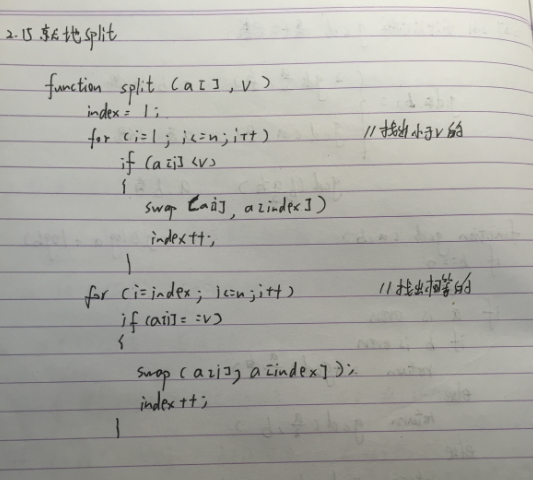 2.15 就地split
function split (a[], v)
index = 1;
for (i=1; i<=n; i++) //找出小于v的
if (a[i] <v)
{
swap (a[i], a[index])
index++;
}
for (i=index; i<=n; i++) //找出相等的
if (a[i] = =v)
{
swap (a[i], a[index]);
index++;
}